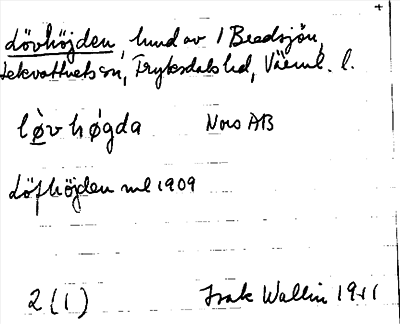 +
Lövhöjden, hund av / Bredsjön,
Lekvattnets sn, Fryksdals hd, Värml. l.
lø̀vhǿgda Noro AB
Löfhöjden ml 1909
2 (1) Isak Wallin 1911